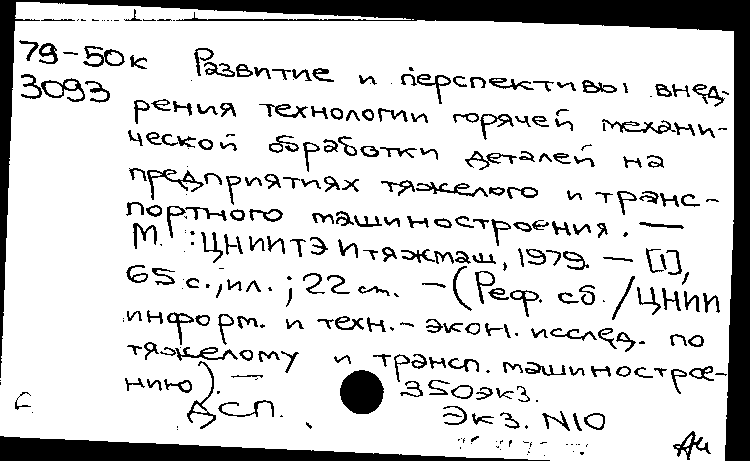 79-50к Развитие и перспективы внед-
3093 рения технологии горячей механи-
ческой обработки деталей на
предприятиях тяжелого и транс-
портного машиностроения. —
М.: ЦНИИТЭИтяжмаш, 1979. — [1],
65 с., ил.; 22 см. — (Реф. сб. / ЦНИИ
информ. и техн.-экон. исслед. по
тяжелому и трансп. машинострое-
нию). — 350 экз.
ДСП. Экз. N10